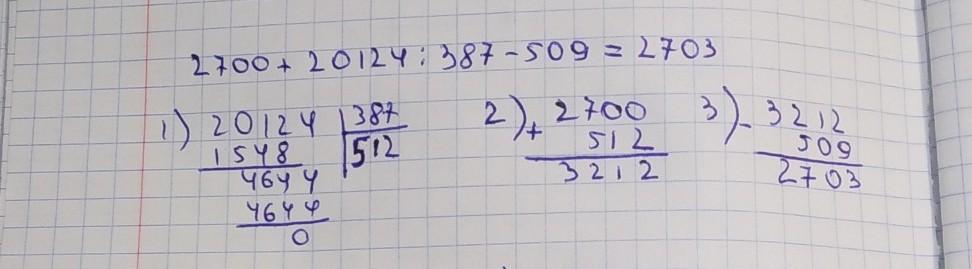 2700 + 20124 : 387 - 509 = 2703
1) 20124 387
1548 512
4644
4644
0
2) + 2700
512
3212
3) - 3212
509
2703